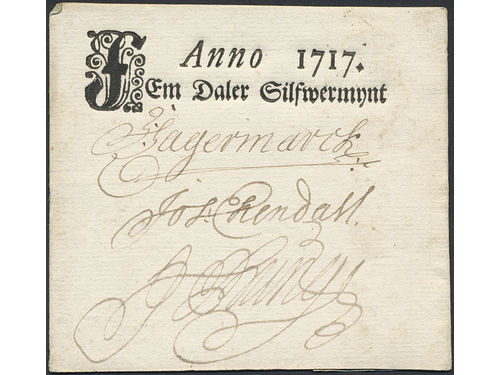 Anno 1717.
FEm Daler Silfwermynt
Hagermarck
Jos. Ekendall.